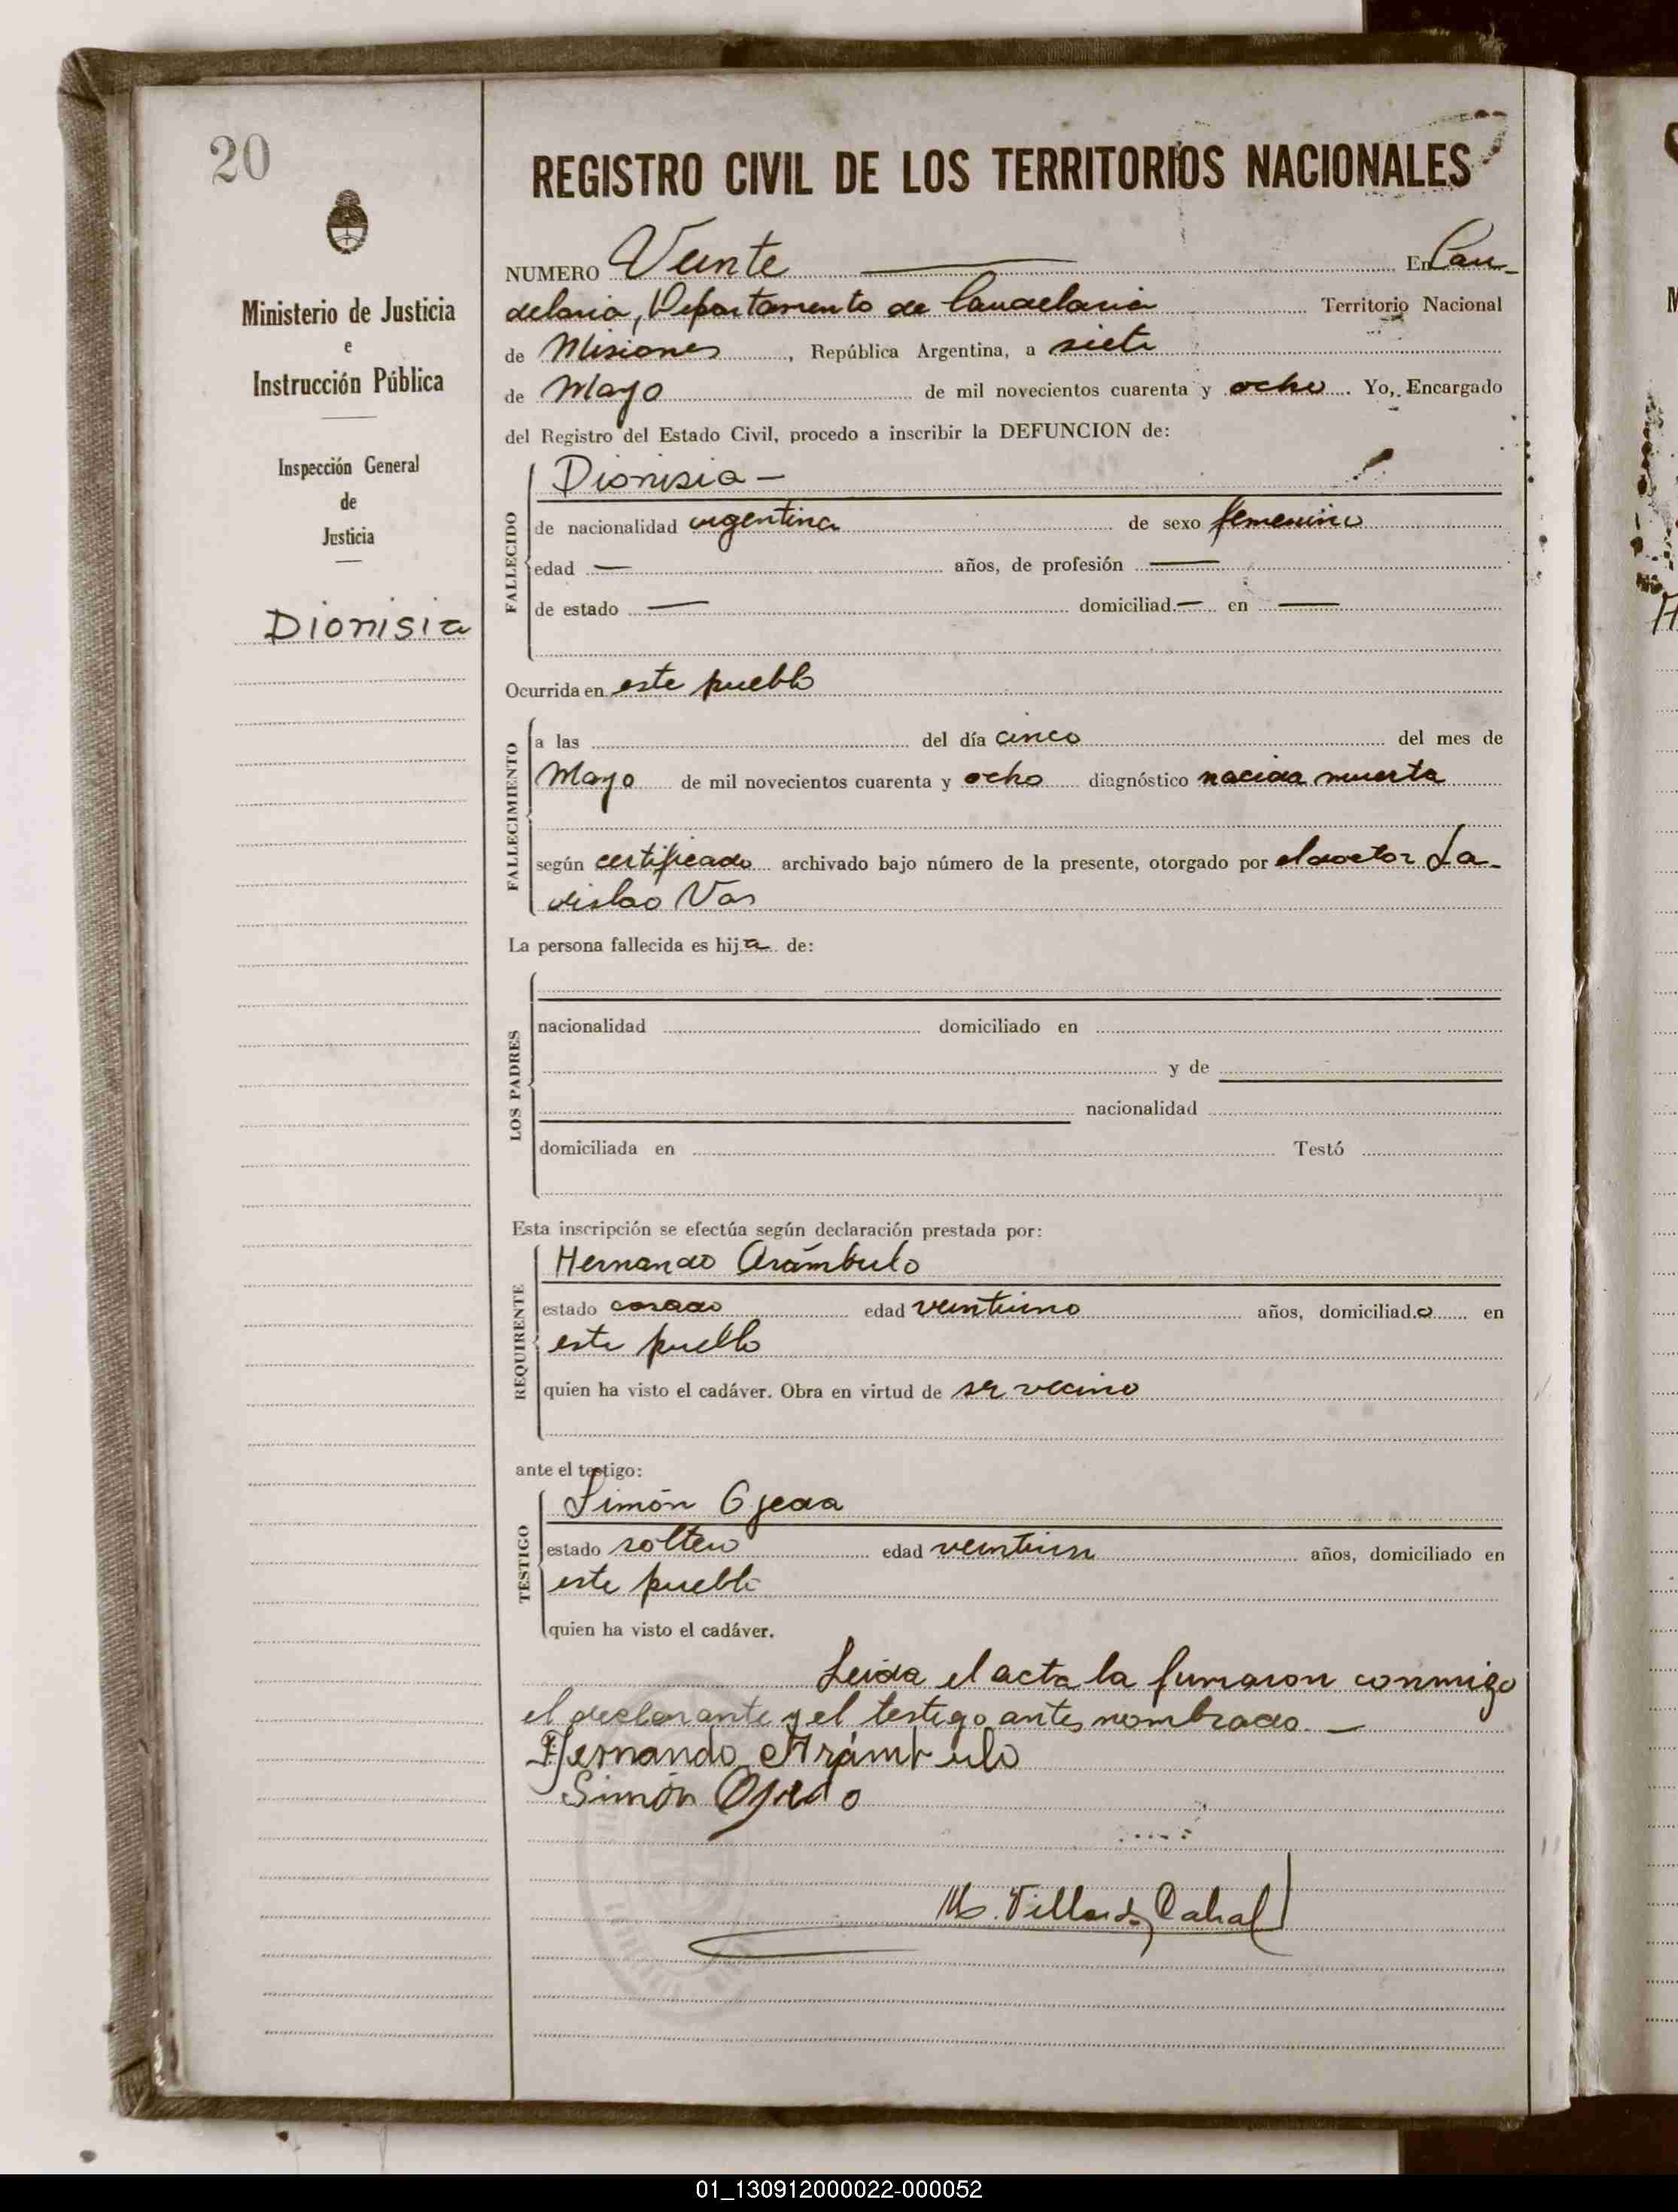 20
Ministerio de Justicia
e
Instrucción Pública
Inspección General
de
Justicia
Dionisia
REGISTRO CIVIL DE LOS TERRITORIOS NACIONALES
NUMERO Veinte En Can-
delaria, Departamento de Candelaria Territorio Nacional
de Misiones, República Argentina, a siete
de Mayo de mil novecientos cuarenta y ocho. Yo, Encargado
del Registro del Estado Civil, procedo a inscribir la DEFUNCION de:
FALLECIDO
Dionisia —
de nacionalidad argentina de sexo femenino
edad — años, de profesión —
de estado — domiciliad — en —
Ocurrida en este pueblo
FALLECIMIENTO
a las del día cinco del mes de
Mayo de mil novecientos cuarenta y ocho diagnóstico nacida muerta
según certificado archivado bajo número de la presente, otorgado por el doctor La-
dislao Vas
La persona fallecida es hija de:
LOS PADRES
nacionalidad domiciliado en
y de
nacionalidad
domiciliada en Testó
Esta inscripción se efectúa según declaración prestada por:
REQUIRENTE
Hernando Arámbulo
estado casado edad veintiuno años, domiciliado en
este pueblo
quien ha visto el cadáver. Obra en virtud de ser vecino
ante el testigo:
TESTIGO
Simón Ojeda
estado soltero edad veintiun años, domiciliado en
este pueblo
quien ha visto el cadáver.
Leida el acta la firmaron conmigo
el declarante y el testigo antes nombrado. —
Hernando Arámbulo
Simón Ojeda
M. Villarde Cabal
01_130912000022-000052